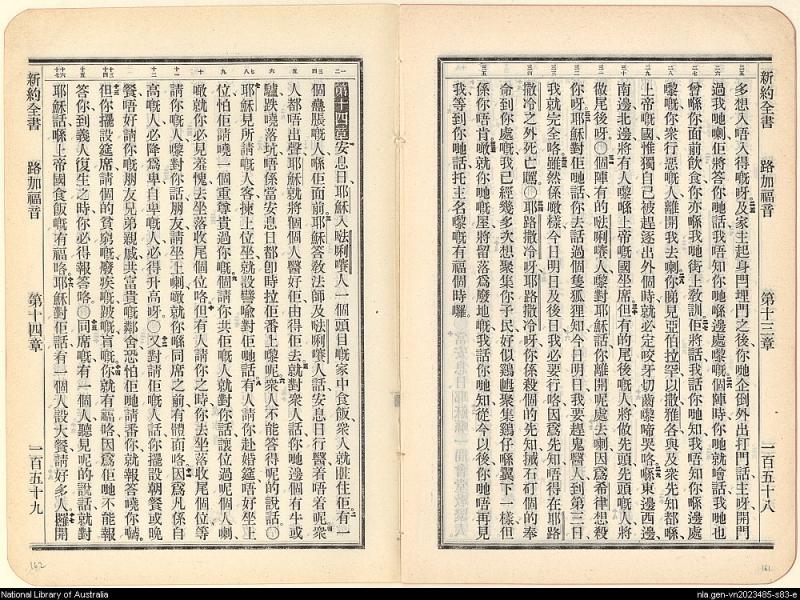 新約全書 路加福音 第十三章 一百五十八
多想入唔入得嘅呀及家主起身閂埋門之後你哋企倒外出打門話主呀開門
過我哋喇佢將答你哋話我唔知你哋係邊處嚟嘅個陣時你哋就會話我哋也
曾喺你面前飲食你亦喺我哋街上教訓佢將話我話你哋知我唔知你喺邊處
嚟嘅你衆行惡嘅人離開我去喇你睇見亞伯拉罕以撒雅各與及衆先知都喺
上帝嘅國惟獨自己被趕逐出外個時就必定咬牙切齒嚟啼哭咯喺東邊西邊
南邊北邊將有人嚟喺上帝嘅國坐席但有的尾後嘅人將做先頭先頭嘅人將
做尾後呀〇個陣有的𠵽唎嚷人嚟對耶穌話你離開呢處去喇因爲希律想殺
你呀耶穌對佢哋話你去話過個隻狐狸知今日明日我要趕鬼醫人到第三日
我就完全咯雖然係噉樣今日明日及後日我必要行咯因爲先知唔得在耶路
撒冷之外死亡嘅〇耶路撒冷呀耶路撒冷呀你係殺個的先知掟石矴個的奉
命到你處嘅我已經幾多次想聚集你子民好似鷄𪃿聚集鷄仔喺翼下一樣但
係你唔肯噉就你哋嘅屋將留落爲廢地嘅我話你哋知從今以後你哋唔再見
我等到你哋話托主名嚟嘅有福個時囉
新約全書 路加福音 第十四章 一百五十九
第十四章安息日耶穌入𠵽唎嚷人一個頭目嘅家中食飯衆人就𥄫住佢有一
個蠱脹嘅人喺佢面前耶穌答敎法師及𠵽唎嚷人話安息日行醫着唔着呢衆
人都唔出聲耶穌就將個個人醫好佢由得佢去就對衆人話你哋邊個有牛或
驢跌曉落坑唔係當安息日都卽時拉佢番上嚟呢衆人不能答得呢的說話〇
耶穌見所請嘅人客揀上位坐就設譬喻對佢哋話有人請你赴婚筵唔好坐上
位怕佢請曉一個重尊貴過你嘅個請你共佢嘅人就對你話讓位過呢個人喇
噉就你必見羞愧去坐落收尾個位咯但有人請你之時你去坐落收尾個位等
請你嘅人嚟對你話朋友請坐上喇噉就你喺同席之前有體面咯因爲凡係自
高嘅人必降爲卑自卑嘅人必得升高呀〇又對請佢嘅人話你擺設朝餐或晚
餐唔好請你嘅朋友兄弟親戚共富貴嘅鄰舍恐怕佢哋請番你就報答曉你嚹
但你擺設筵席請個的貧窮嘅廢疾嘅跛嘅盲嘅你就有福咯因爲佢哋不能報
答你到義人復生之時你必得報答咯〇同席嘅有一個人聽見呢的說話就對
耶穌話喺上帝國食飯嘅有福咯耶穌對佢話有一個人設大餐請好多人𨶙開
162
161
National Library of Australia
nla.gen-vn2023485-s83-e